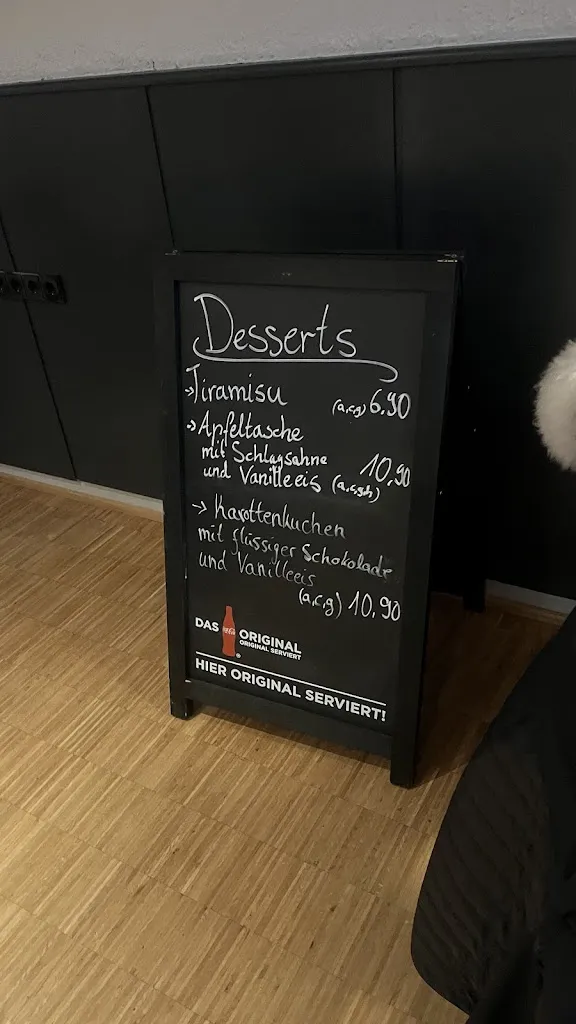 Desserts
→Tiramisu (a,c,g) 6,90
→Apfeltasche
mit Schlagsahne 10,90
und Vanilleeis (a,c,g,h)
→ Karottenkuchen
mit flüssiger Schokolade
und Vanilleeis
(a,c,g) 10,90
DAS Coca-Cola ORIGINAL
ORIGINAL SERVIERT
HIER ORIGINAL SERVIERT!